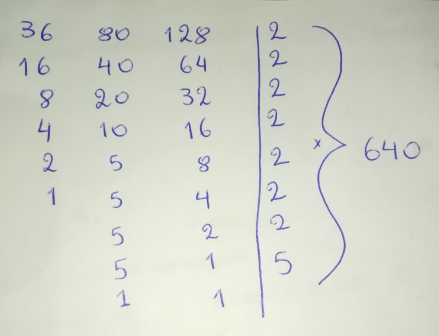 36 80 128 2
16 40 64 2
8 20 32 2
4 10 16 2
2 5 8 2 × 640
1 5 4 2
5 2 2
5 1 5
1 1